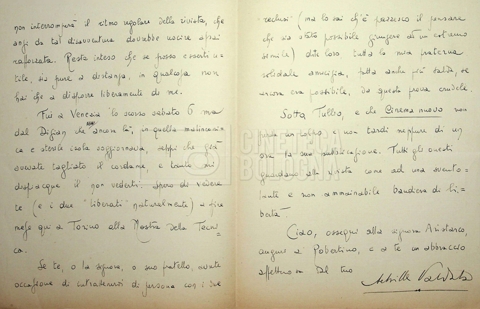 non interromperà il ritmo regolare della rivista, che
anzi da tal disavventura dovrebbe uscire assai
rafforzata. Resta inteso che se posso esserti u-
tile, sia pure a distanza, in qualcosa non
hai che a disporre liberamente di me.
Fui a Venezia lo scorso sabato 5 ma
dal Bizjan che ancor là, in quella malinconia
ca e sterile costa soggiornava, seppi che già
avevate tagliato il cordame, e tanto mi
dispiacque il non vederti. Spero di vederce
ce (e i due "liberati" naturalmente) a fine
mese qui a Torino alla Mostra della Tecni-
ca.
Se te, o la signora, o suo fratello, avete
occasione di intrattenervi di persona con i due
reclusi (ma lo sai ch'è pazzesco il pensare
che sia stato possibile giungere di un estremo
simile) dite loro tutta la mia fraterna
solidale amicizia, fatta anche più salda, se
ancora era possibile, da questa prova crudele.
Sotto Tullo, e che Cinema nuovo non
un'ora la sua pubblicazione. Tutti gli onesti
guardano alla rivista come ad una svento-
lante e non ammainabile bandiera di li-
bertà.
Ciao, ossequi alla signora Aristarco,
auguri a Robertino, e a te un abbraccio
affettuoso dal tuo
Achille Valdata